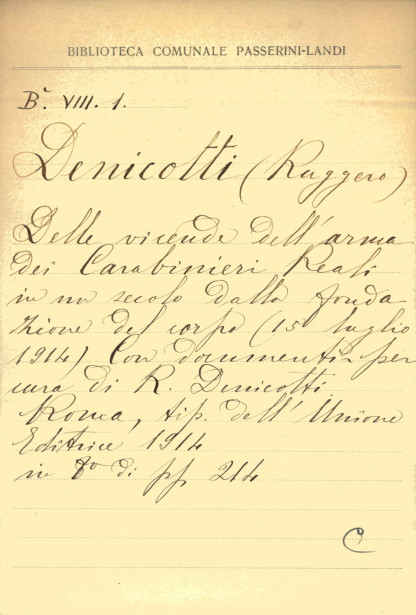 BIBLIOTECA COMUNALE PASSERINI-LANDI
B.ª VIII. 1.
Denicotti (Ruggero)
Delle vicende dell'arma
dei Carabinieri Reali
in un secolo dalla fonda
zione del corpo (15 luglio
1914) Con documenti - per
cura di R. Denicotti
Roma, tip. dell'Unione
Editrice 1914
in 8º di pp 214
C